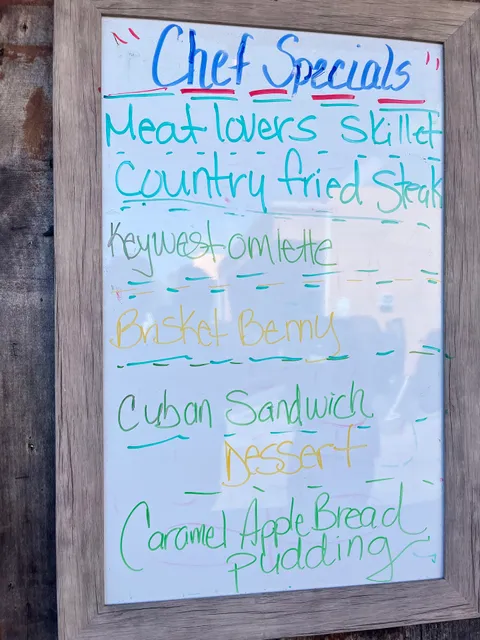 " Chef Specials "
Meat lovers Skillet
Country fried Steak
Keywest omlette
Brisket Benny
Cuban Sandwich
Dessert
Caramel Apple Bread
pudding